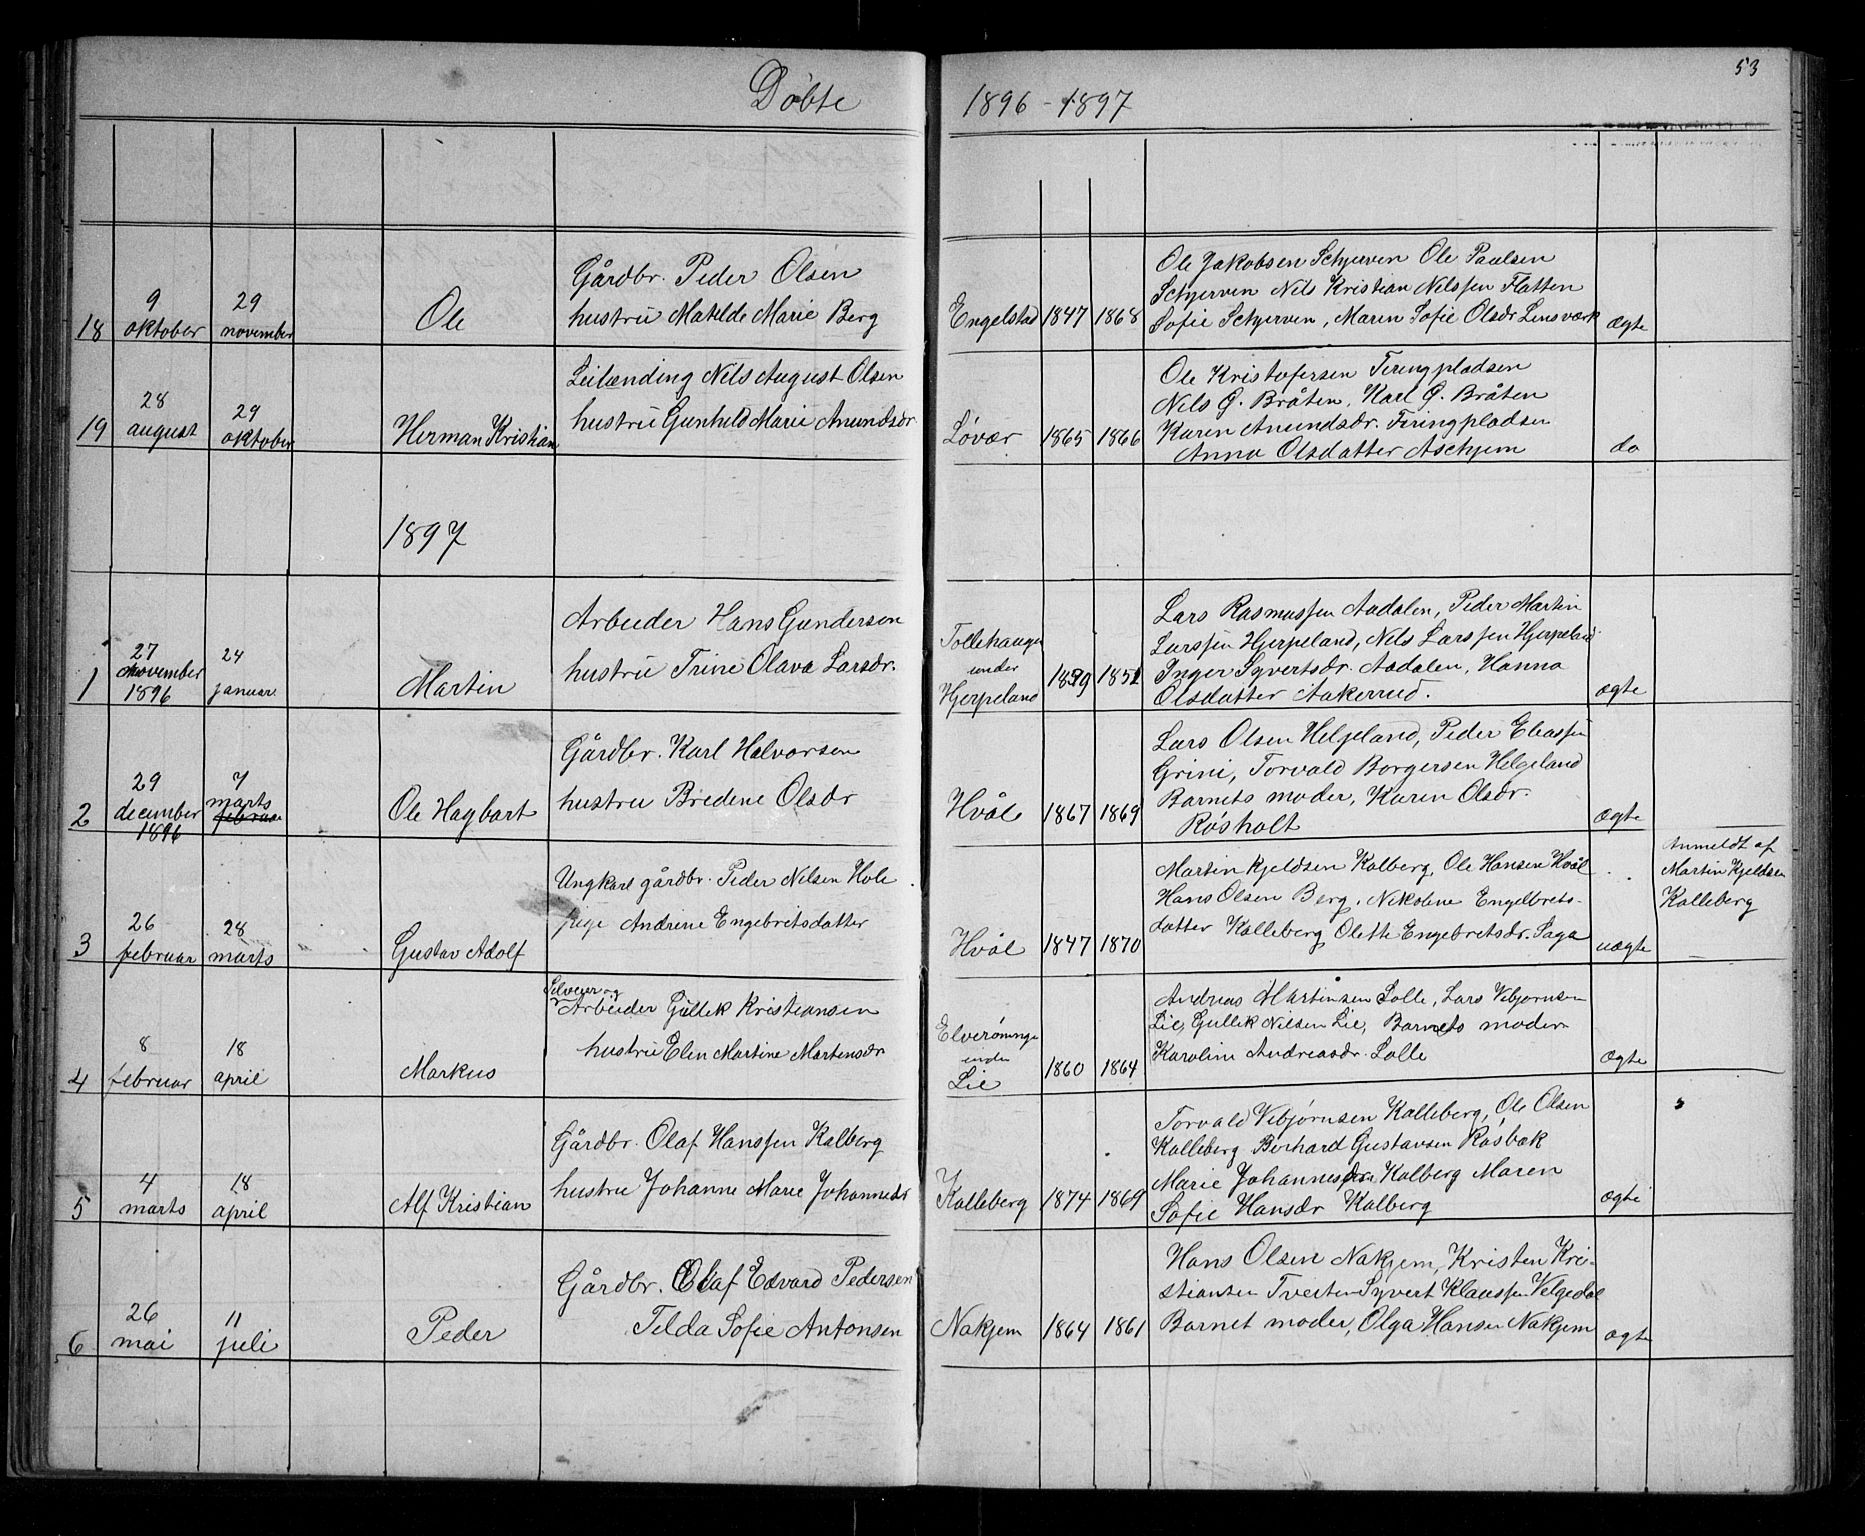 Døbte
1896-1897
53
18
9
oktober
29
november
Ole
Gårdbr. Peder Olsen
hustru Matilde Marie Berg
Engelstad
1847
1868
Ole Jakobsen Schjerven Ole Paulsen
Schjerven Nils Kristian Nilssen Flatten
Sofie Schjerven, Maren Sofie Olsdr Linsværk
ægte
19
28
august
29
oktober
Herman Kristian
Leilænding Nils August Olsen
hustru Gunhild Marie Amundsdr
Løvær
1865
1866
Ole Kristofersen Firingpladsen
Nils G. Bråten, Karl G. Bråten
Karen Amundsdr. Firingpladsen
Anna Olsdatter Aschjem
do
1897
1
27
november
1896
24
januar
Martin
Arbeider Hans Gundersen
hustru Trine Olava Larsdr.
Tollehaugen
under
Hjerpeland
1859
1852
Lars Rasmussen Aadalen, Peder Martin
Larssen Hjerpeland, Nils Larssen Hjerpeland
Inger Syvertsdr. Aadalen, Hanna
Olsdatter Aakerrud.
ægte
2
29
december
1896
7
marts
februar
Ole Hagbart
Gårdbr. Karl Halvorsen
hustru Bredine Olsdr
Hvål
1867
1869
Lars Olsen Helgeland, Peder Eliassen
Grini, Torvald Borgersen Helgeland
Barnets moder, Karen Olsdr.
Røsholt
ægte
3
26
februar
28
marts
Gustav Adolf
Ungkarl gårdbr. Peder Nilsen Hole
pige Andrine Engebretsdatter
Hvål
1847
1870
Martin Kjeldsen Kalberg, Ole Hansen Hvål
Hans Olsen Berg, Nikoline Engelbrets-
datter Kalleberg Olette Engebretsdr. Saga
uægte
Anmeldt af
Martin Kjeldsen
Kalleberg
4
8
februar
18
april
Markus
Selveier og
Arbeider Gullik Kristiansen
hustru Elen Martine Martensdr
Elverømnge
under
Lie
1860
1864
Andreas Martinsen Lolle, Lars Vebjørnsen
Lie, Gullik Nilsen Lie, Barnets moder
Karoline Andreasdr. Lolle
ægte
5
4
marts
18
april
Alf Kristian
Gårdbr. Olaf Hanssen Kalberg
hustru Johanne Marie Johannesdr
Kalleberg
1874
1869
Torvald Vebjørnsen Kalleberg, Ole Olsen
Kalleberg Berhard Gustavsen Råsbak
Marie Johannesdr. Kalberg Maren
Sofie Hansdr Kalberg
ægte
6
26
mai
11
juli
Peder
Gårdbr. Olaf Edvard Pedersen
Tilda Sofie Antonsen
Nakjem
1864
1861
Hans Olsen Nakjem, Kristen Kri-
stiansen Tveiten Syvert Klaussen Velgedal
Barnet moder, Olga Hansen Nakjem
ægte